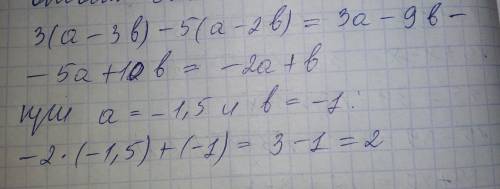 3(a - 3b) - 5(a - 2b) = 3a - 9b -
- 5a + 10b = -2a + b
при a = -1,5 и b = -1:
-2 · (-1,5) + (-1) = 3 - 1 = 2